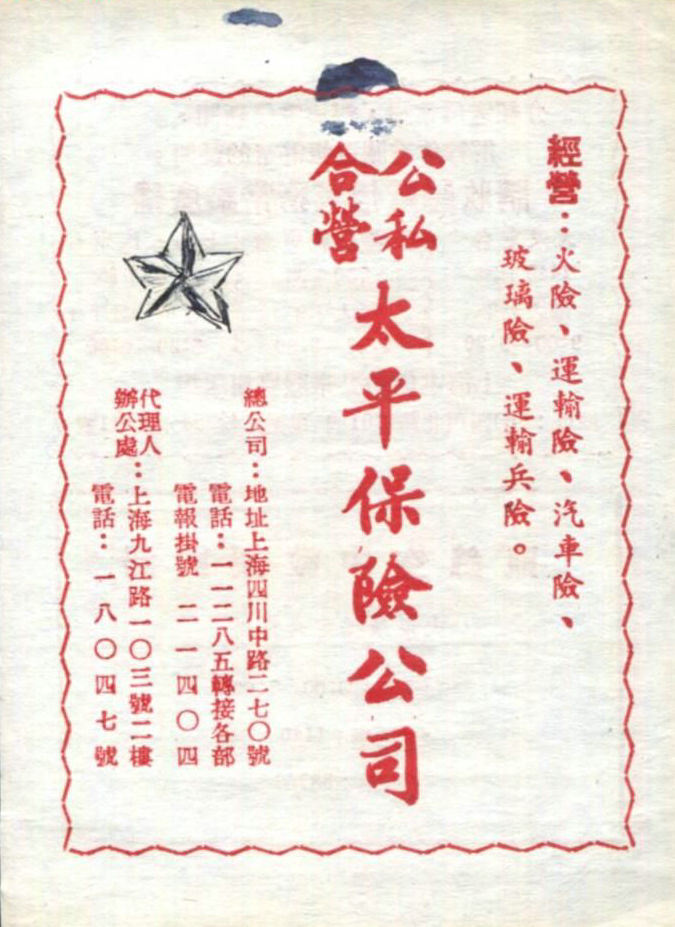 經營：火險、運輸險、汽車險、
玻璃險、運輸兵險。
公私
合營
太平保險公司
總公司：地址上海四川中路二七〇號
電話：一一二八五轉接各部
電報掛號 二一四〇四
代理人
辦公處：上海九江路一〇三號二樓
電話：一八〇四七號